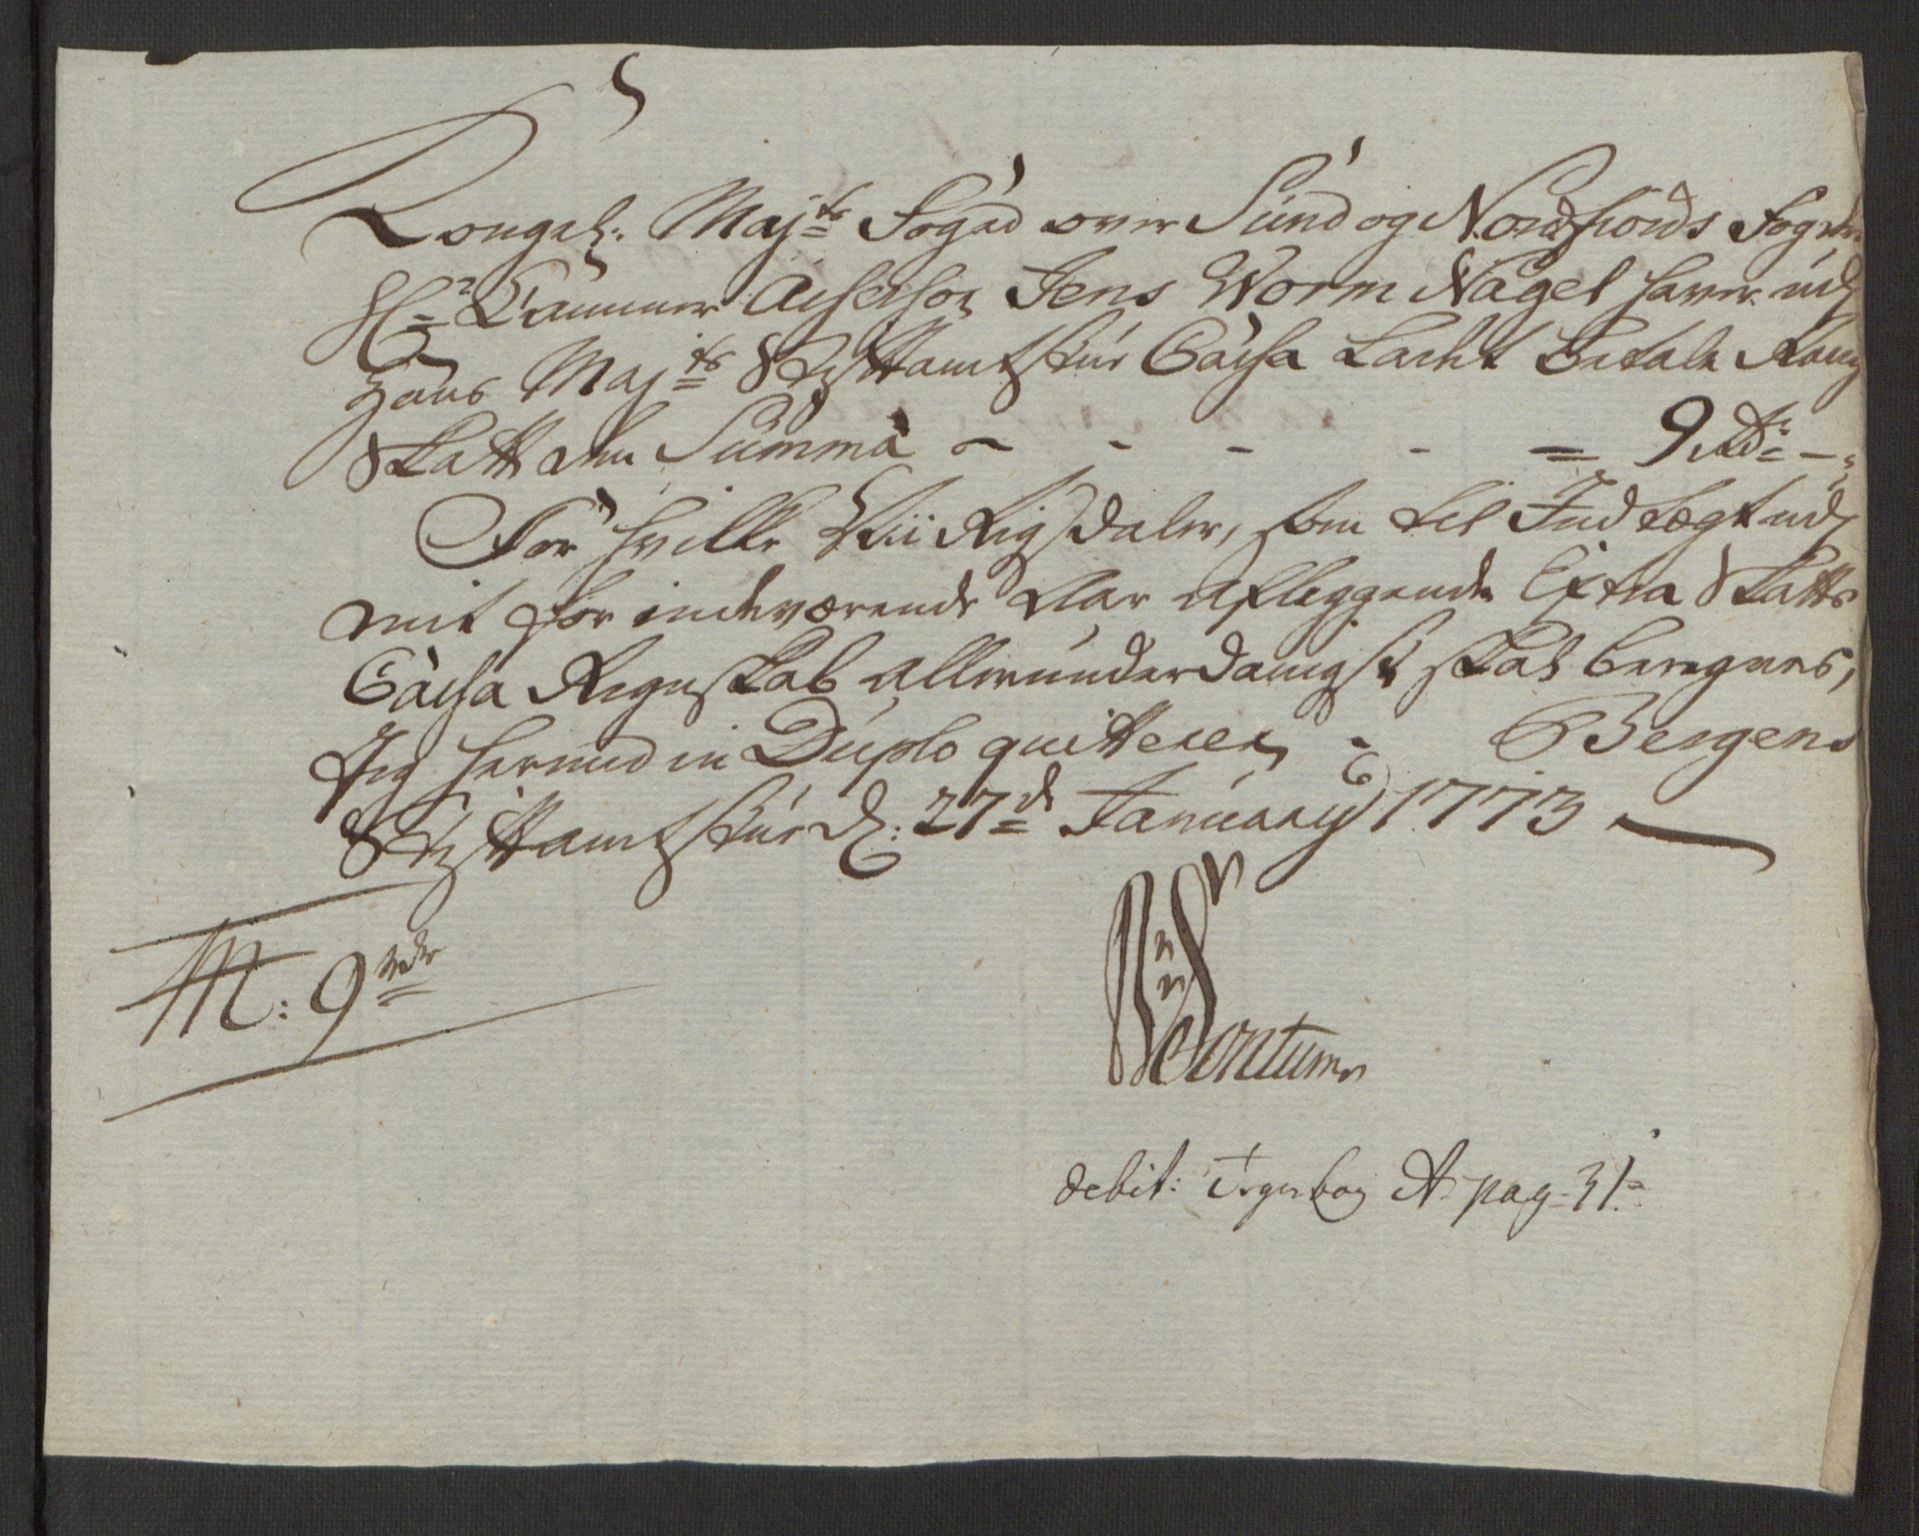 Kongel: Maj:ts Foged over Sund og Nordfiords Fogde
Hr Cammer Assessor Jens Worm Nagel haver udj
Hans Maj:ts Stiftamtstue Cassa ladet betale Rang
Skatt den Summa - - - - = 9 rdr -
For hvilke Nii Rigsdaler, som til Indtægt udj
mit for indeværende Aar aflæggende Extra Skatts
Cassa Regnskab allerunderdanigst skal beregnes,
Jeg hermed in Duplo quitterer - Bergens
Stiftamtstue d: 27de January 1773
M: 9 rdr
Sontum
debit: Tegnebog A pag: 31